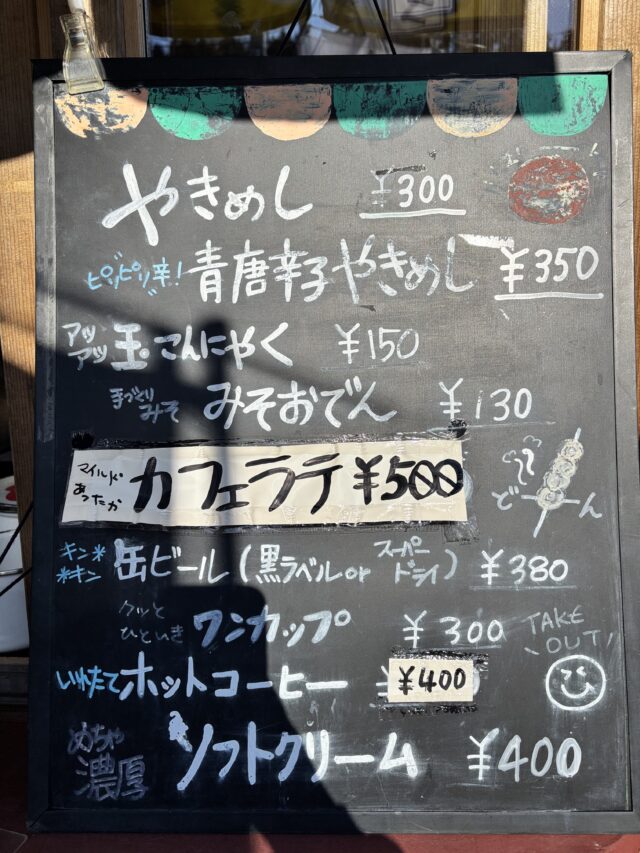 やきめし ¥300
ピリピリ辛! 青唐辛子やきめし ¥350
アツアツ 玉こんにゃく ¥150
手づくりみそ みそおでん ¥130
マイルド あったか カフェラテ ¥500
どーん
キンキン 缶ビール(黒ラベルorスーパードライ) ¥380
クッとひといき ワンカップ ¥300
TAKE OUT!
いれたて ホットコーヒー ¥400
めちゃ濃厚 ソフトクリーム ¥400